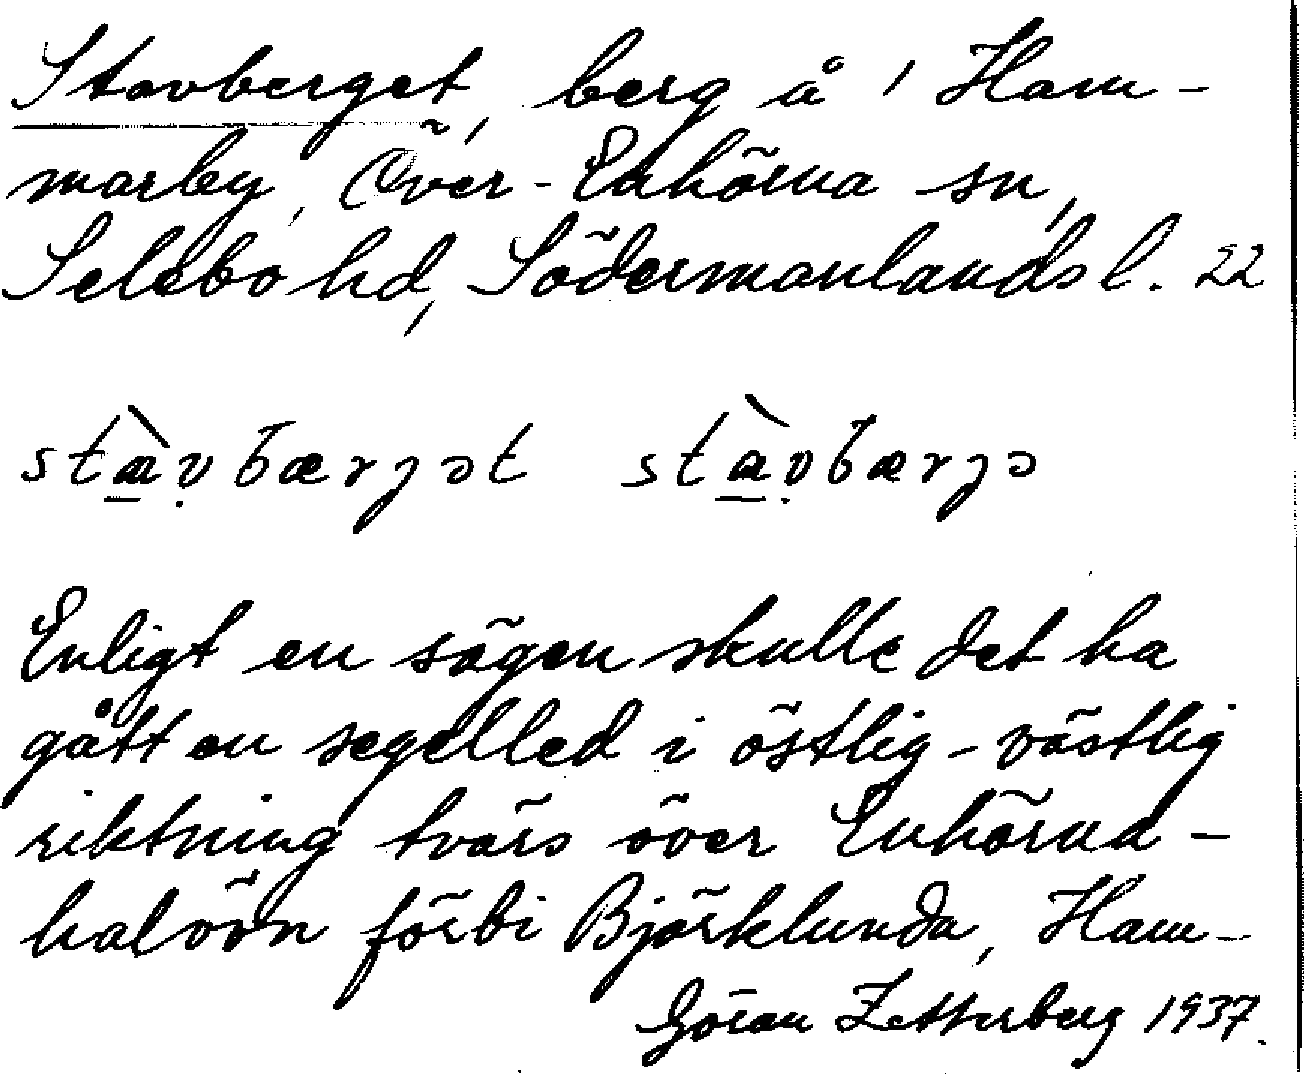 Stavberget, berg å 1 Ham-
marby, Över-Enhörna sn,
Selebo hd, Södermanlands l. 22
stàvbærjət stàvbærjə
Enligt en sägen skulle det ha
gått en segelled i östlig-västlig
riktning tvärs över Enhörna-
halvön förbi Björklunda, Ham-
Göran Zetterberg 1937.